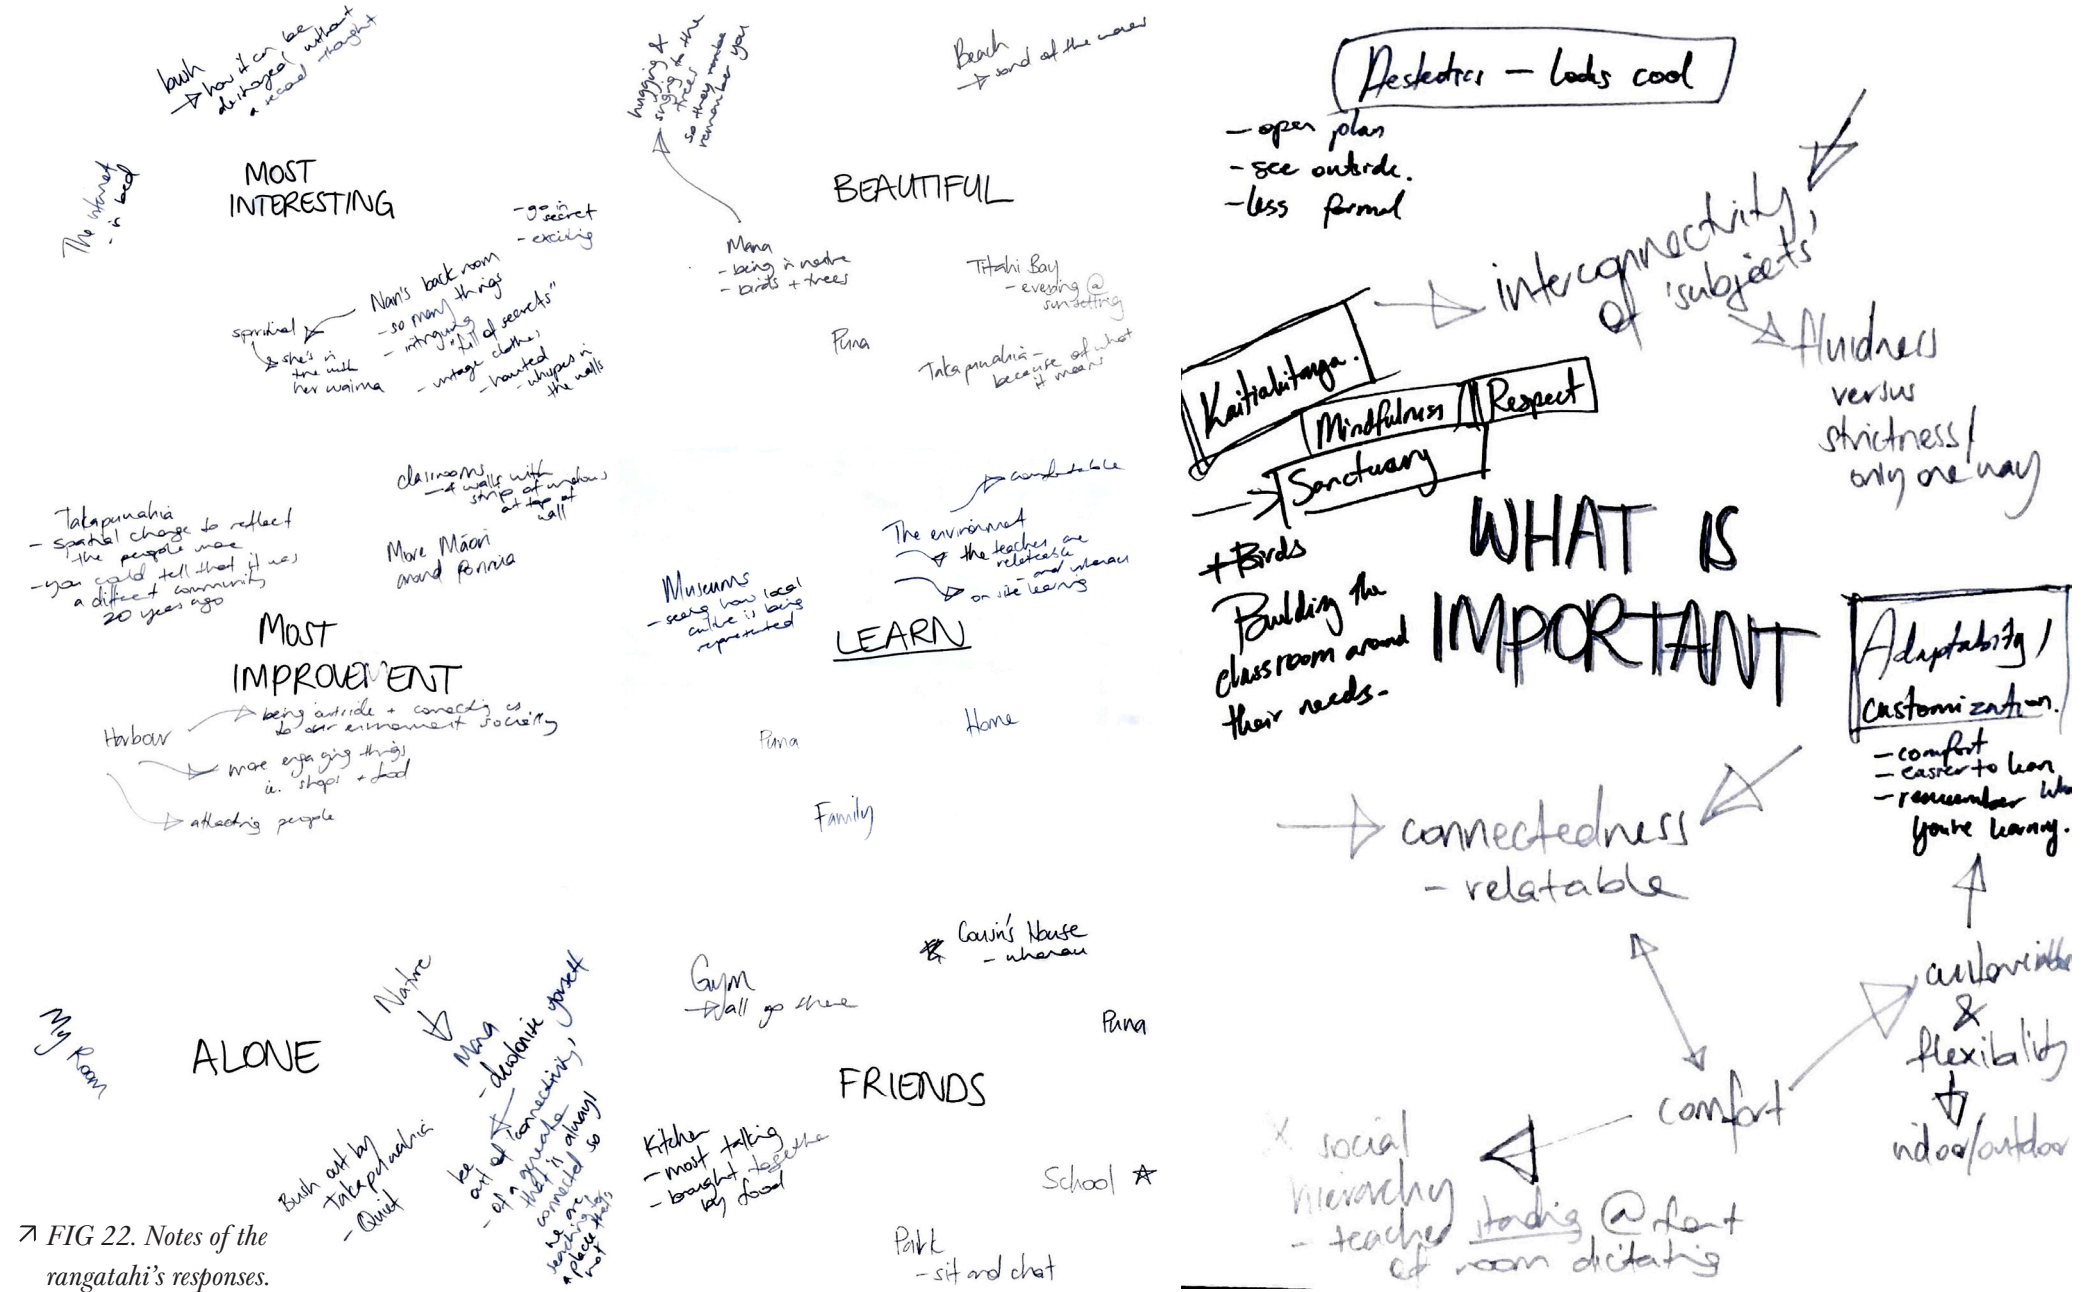 bush
→ how it can be
destroyed without
a second thought
The internet
- in bed
MOST
INTERESTING
- go in
secret
- exciting
Nan's back room
- so many things
- intriguing
"full of secrets"
- vintage clothes
- haunted
- whispers in
the walls
spiritual
she's in
tune with
her wairua
hugging &
singing to the
trees
so they
remember you
Beach
→ sound of the waves
BEAUTIFUL
Mana
- being in nature
- birds + trees
Titahi Bay
- evening @
sunsetting
Puna
Takapuwahia -
because of what
it means
classrooms
- 4 walls with
strip of windows
at top of
wall
Takapuwahia
- spatial change to reflect
the people more
- you could tell that it was
a different community
20 years ago
More Māori
around Porirua
MOST
IMPROVEMENT
Harbour
being outside + connecting us
to our environment socially
more engaging things
ie. shops + food
attracting people
comfortable
The environment
the teachers are
relateable
and whanau
on site learning
Museums
- seeing how local
culture is being
represented
LEARN
Home
Puna
Family
My Room
ALONE
Nature
Mana
- decolonise yourself
be
out of connectivity,
- of a generation
that is always
connected so
we are
searching for
a place that's
not
Bush out by
Takapuwahia
- Quiet
Cousin's House
- whanau
Gym
→ all go there
Puna
FRIENDS
Kitchen
- most talking
- brought together
by food
School ☆
Park
- sit and chat
↗ FIG 22. Notes of the
rangatahi's responses.
Aestetics — looks cool
- open plan
- see outside.
- less formal
interconnectivity
of 'subjects'
fluidness
versus
strictness/
only one way
Kaitiakitanga.
Mindfulness
Respect
Sanctuary
+ Birds
Building the
classroom around
their needs -
WHAT IS
IMPORTANT
Adaptability/
customization.
- comfort
- easier to learn
- remember
you're learning.
connectedness
- relatable
&
flexibility
indoor/outdoor
comfort
x social
hierarchy
- teacher standing @ front
of room dictating